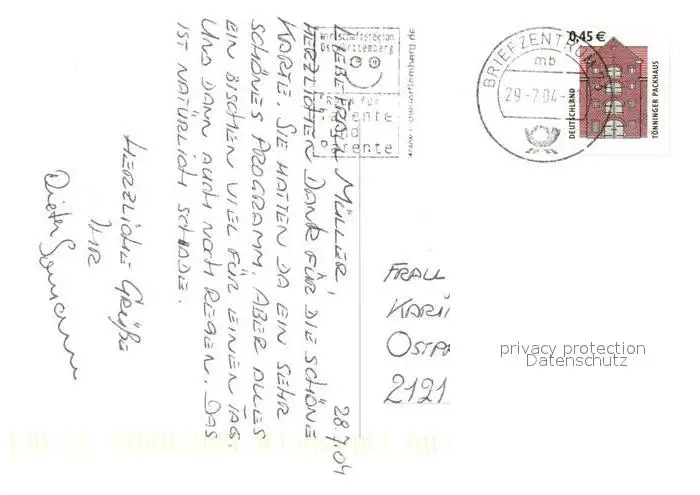 28.7.04
LIEBE FRAU MÜLLER,
HERZLICHEN DANK FÜR DIE SCHÖNE
KARTE. SIE HATTEN DA EIN SEHR
SCHÖNES PROGRAMM. ABER ALLES
EIN BISCHEN VIEL FÜR EINEN TAG.
UND DANN AUCH NOCH REGEN. DAS
IST NATÜRLICH SCHADE.
HERZLICHE GRÜßE
IHR
Dieter
Wirtschaftsregion
Ostwürttemberg
für
Talente
und
Patente
www.ostwuerttemberg.de
BRIEFZENTRUM
mb
29-7.04
0,45 €
DEUTSCHLAND
TÖNNINGER PACKHAUS
FRAU
KARI
OSTPR
2121
privacy protection
Datenschutz